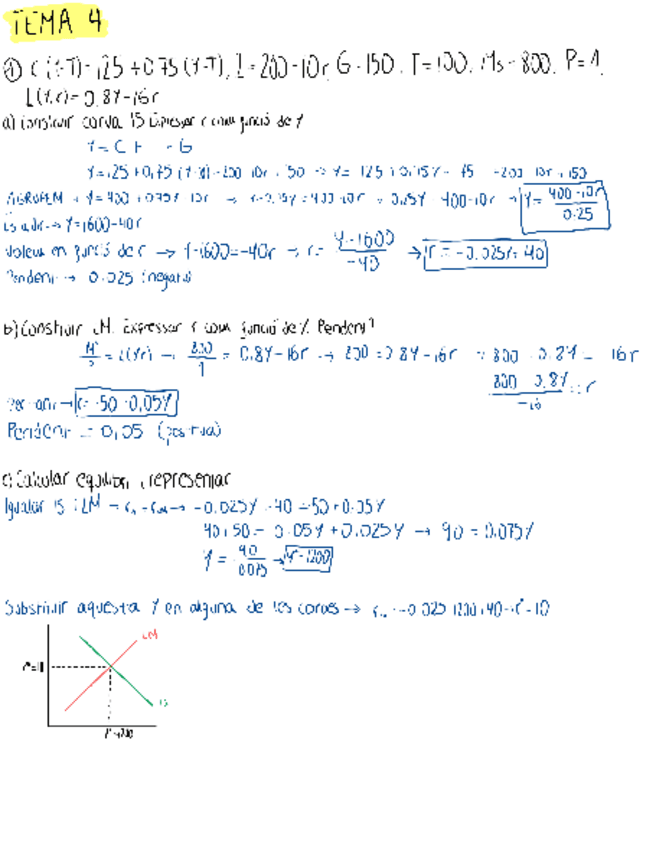 TEMA 4
① C(Y-T)=125+0.75(Y-T), I=200-10r, G=150, T=100, Ms=800, P=1,
L(Y,r)=0.8Y-16r
a) Construir corva IS Expressar r com funció de Y
Y=C+ - G
Y=125+0,75 -200 10r + 150 → Y= 125+0.75Y - 75 -200 10r +150
Y=400+0.75Y-10r → 400-10r = 0.25Y 400-10r → Y= 400-10r / 0.25
→ Y=1600-40r
en funció de r → Y-1600=-40r → r= Y-1600 / -40 → r=-0.025Y+40
Pendent → 0.025 (negatiu)
b) Construir LM. Expressar r com funció de Y. Pendent?
M / P = L(Y,r) → 800 / 1 = 0.8Y-16r → 800=0.8Y-16r = 800-0.8Y=-16r
800-0.8Y / -16 = r
→ r=-50+0,05Y
Pendent = 0,05 (positiva)
c) Calcular equilibri i representar
Igualar IS i LM → -0.025Y+40=-50+0.05Y
40+50= 0.05Y+0.025Y → 90=0.075Y
Y= 90 / 0.075 → Y=1200
Substituir aquesta Y en alguna de les corves → -0.025·1200+40 → r=10
LM
IS